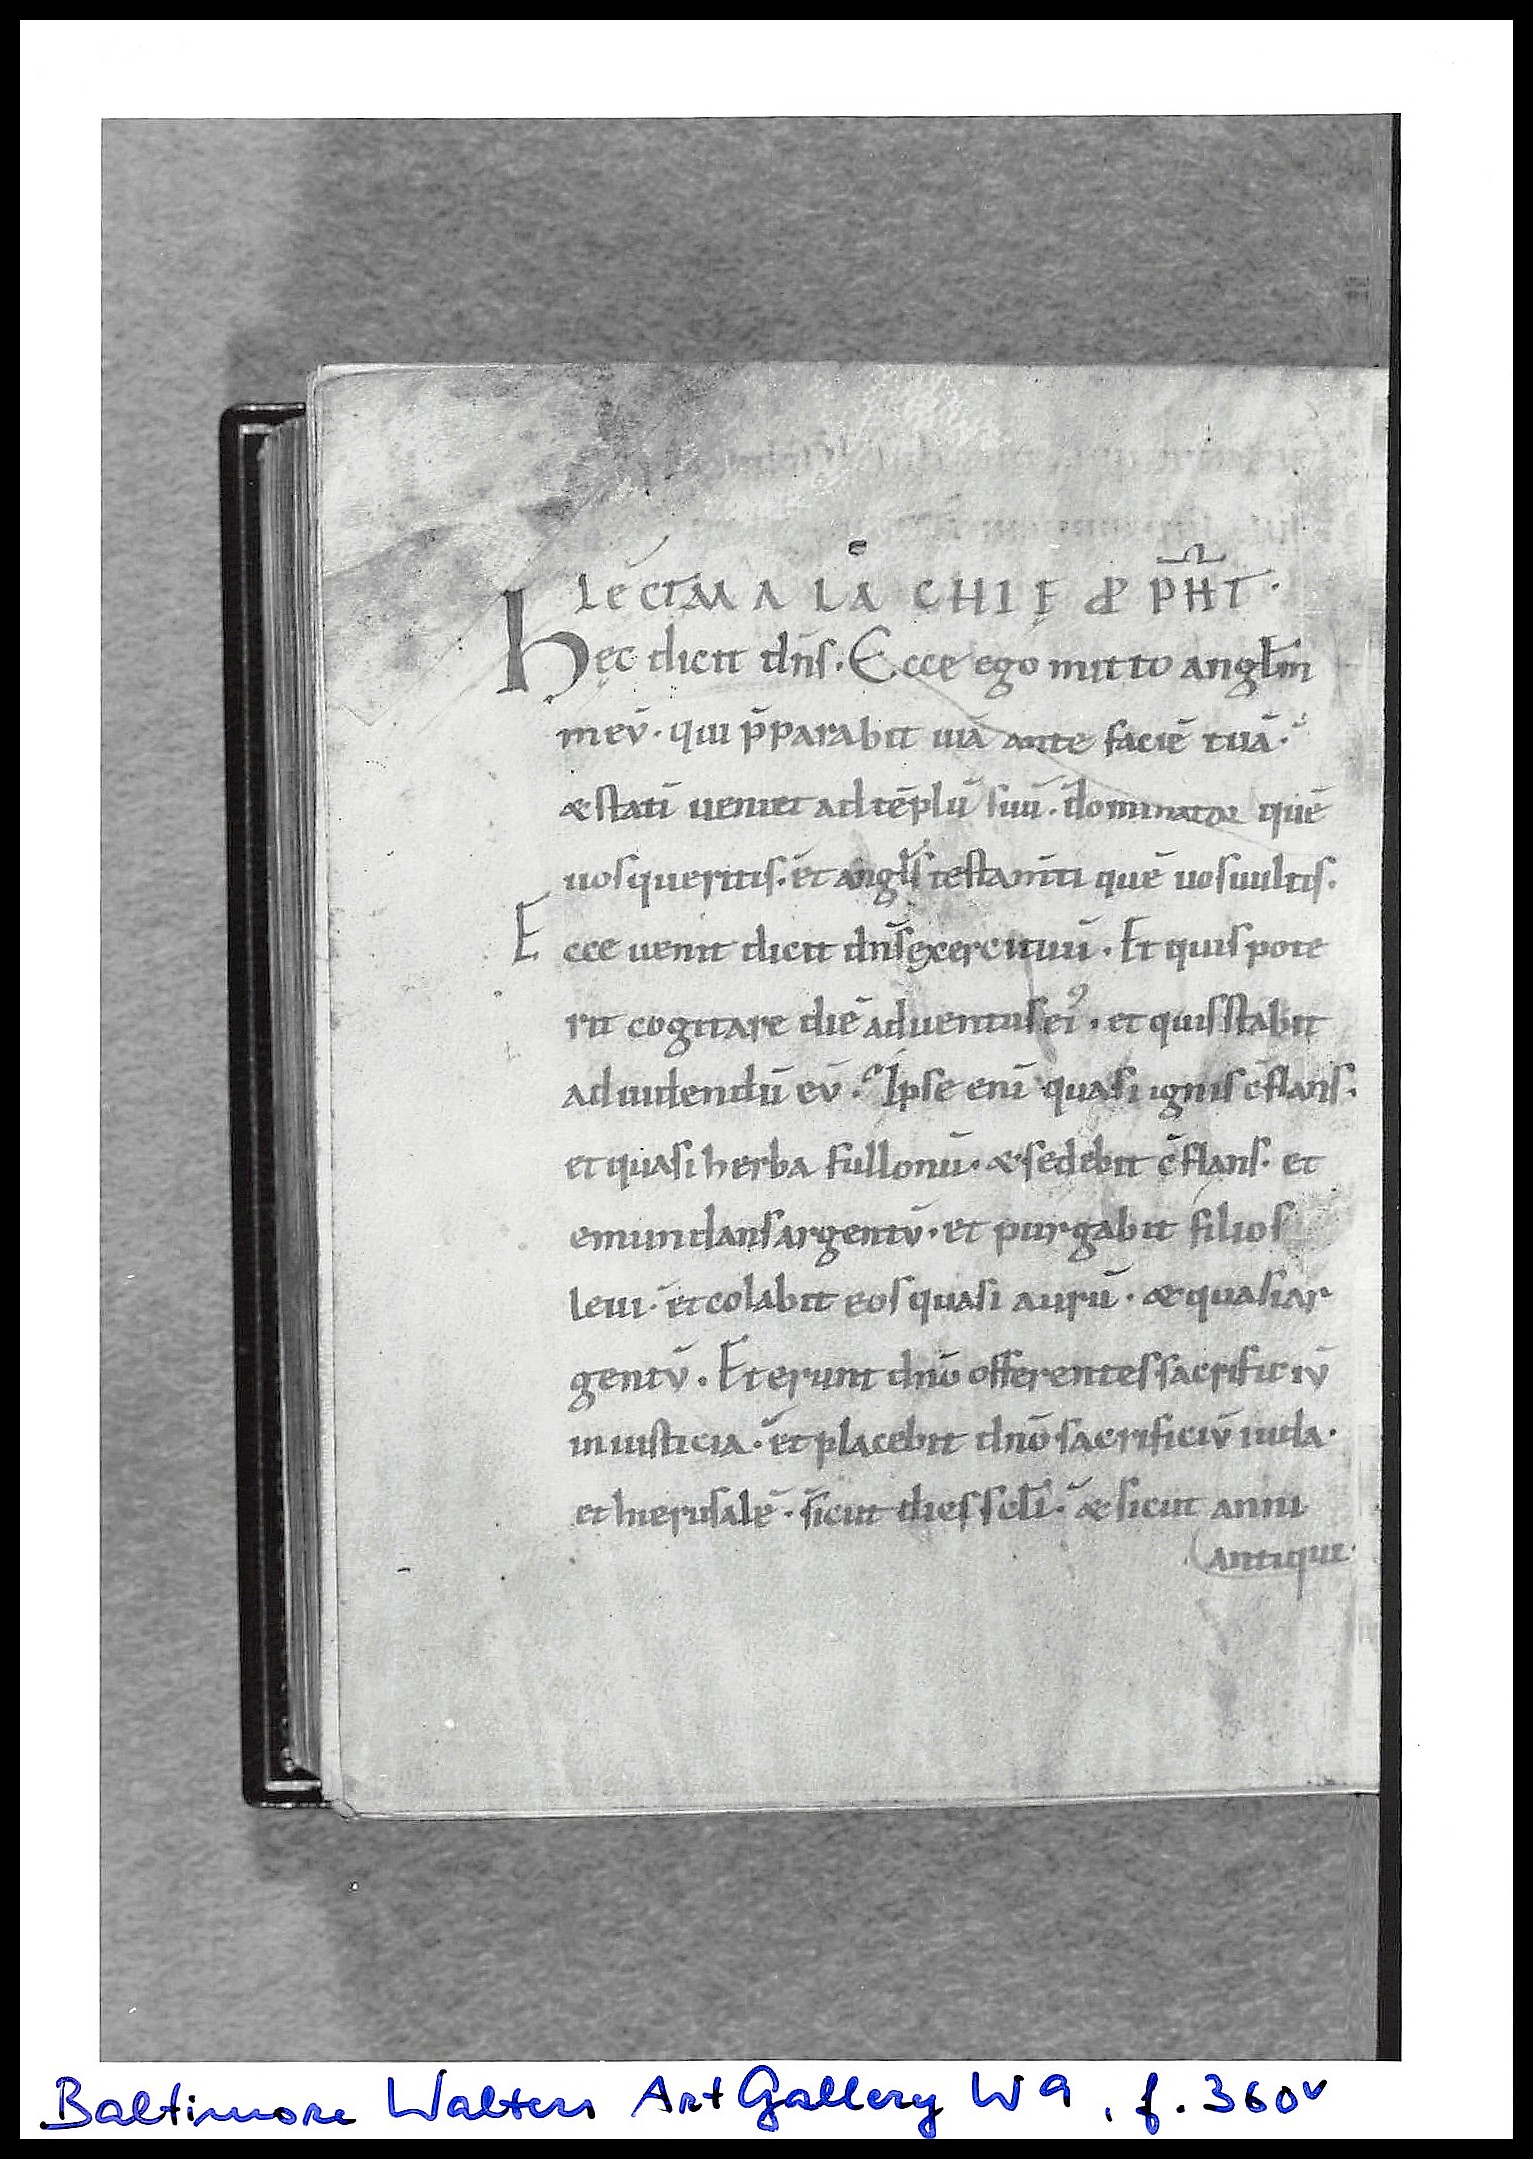 LECT MALACHIĘ P̄PHT.
Hęc dicit dn̄s. Ecce ego mitto angl̄m
mev̄. qui p̄parabit uiā ante faciē tuā.
& statī ueniet ad tēplū suū. dominator quē
uos queritis. et angl̄s testam̄ti quē uos uultis.
Ecce uenit dicit dn̄s exercituū. Et quis pote
rit cogitare diē aduentus ei⁹. et quis stabit
ad uidendū ev̄. Ipse enī quasi ignis c̄flans.
et quasi herba fullonū. & sedebit c̄flans. et
emundans argentv̄. et purgabit filios
leui. et colabit eos quasi aurū. & quasi ar
gentv̄. Et erunt dn̄o offerentes sacrificiv̄
in iusticia. et placebit dn̄o sacrificiv̄ iuda.
et hierusalē. sicut dies scl̄i. & sicut anni
antiqui.
Baltimore Walters Art Gallery W 9, f. 360v